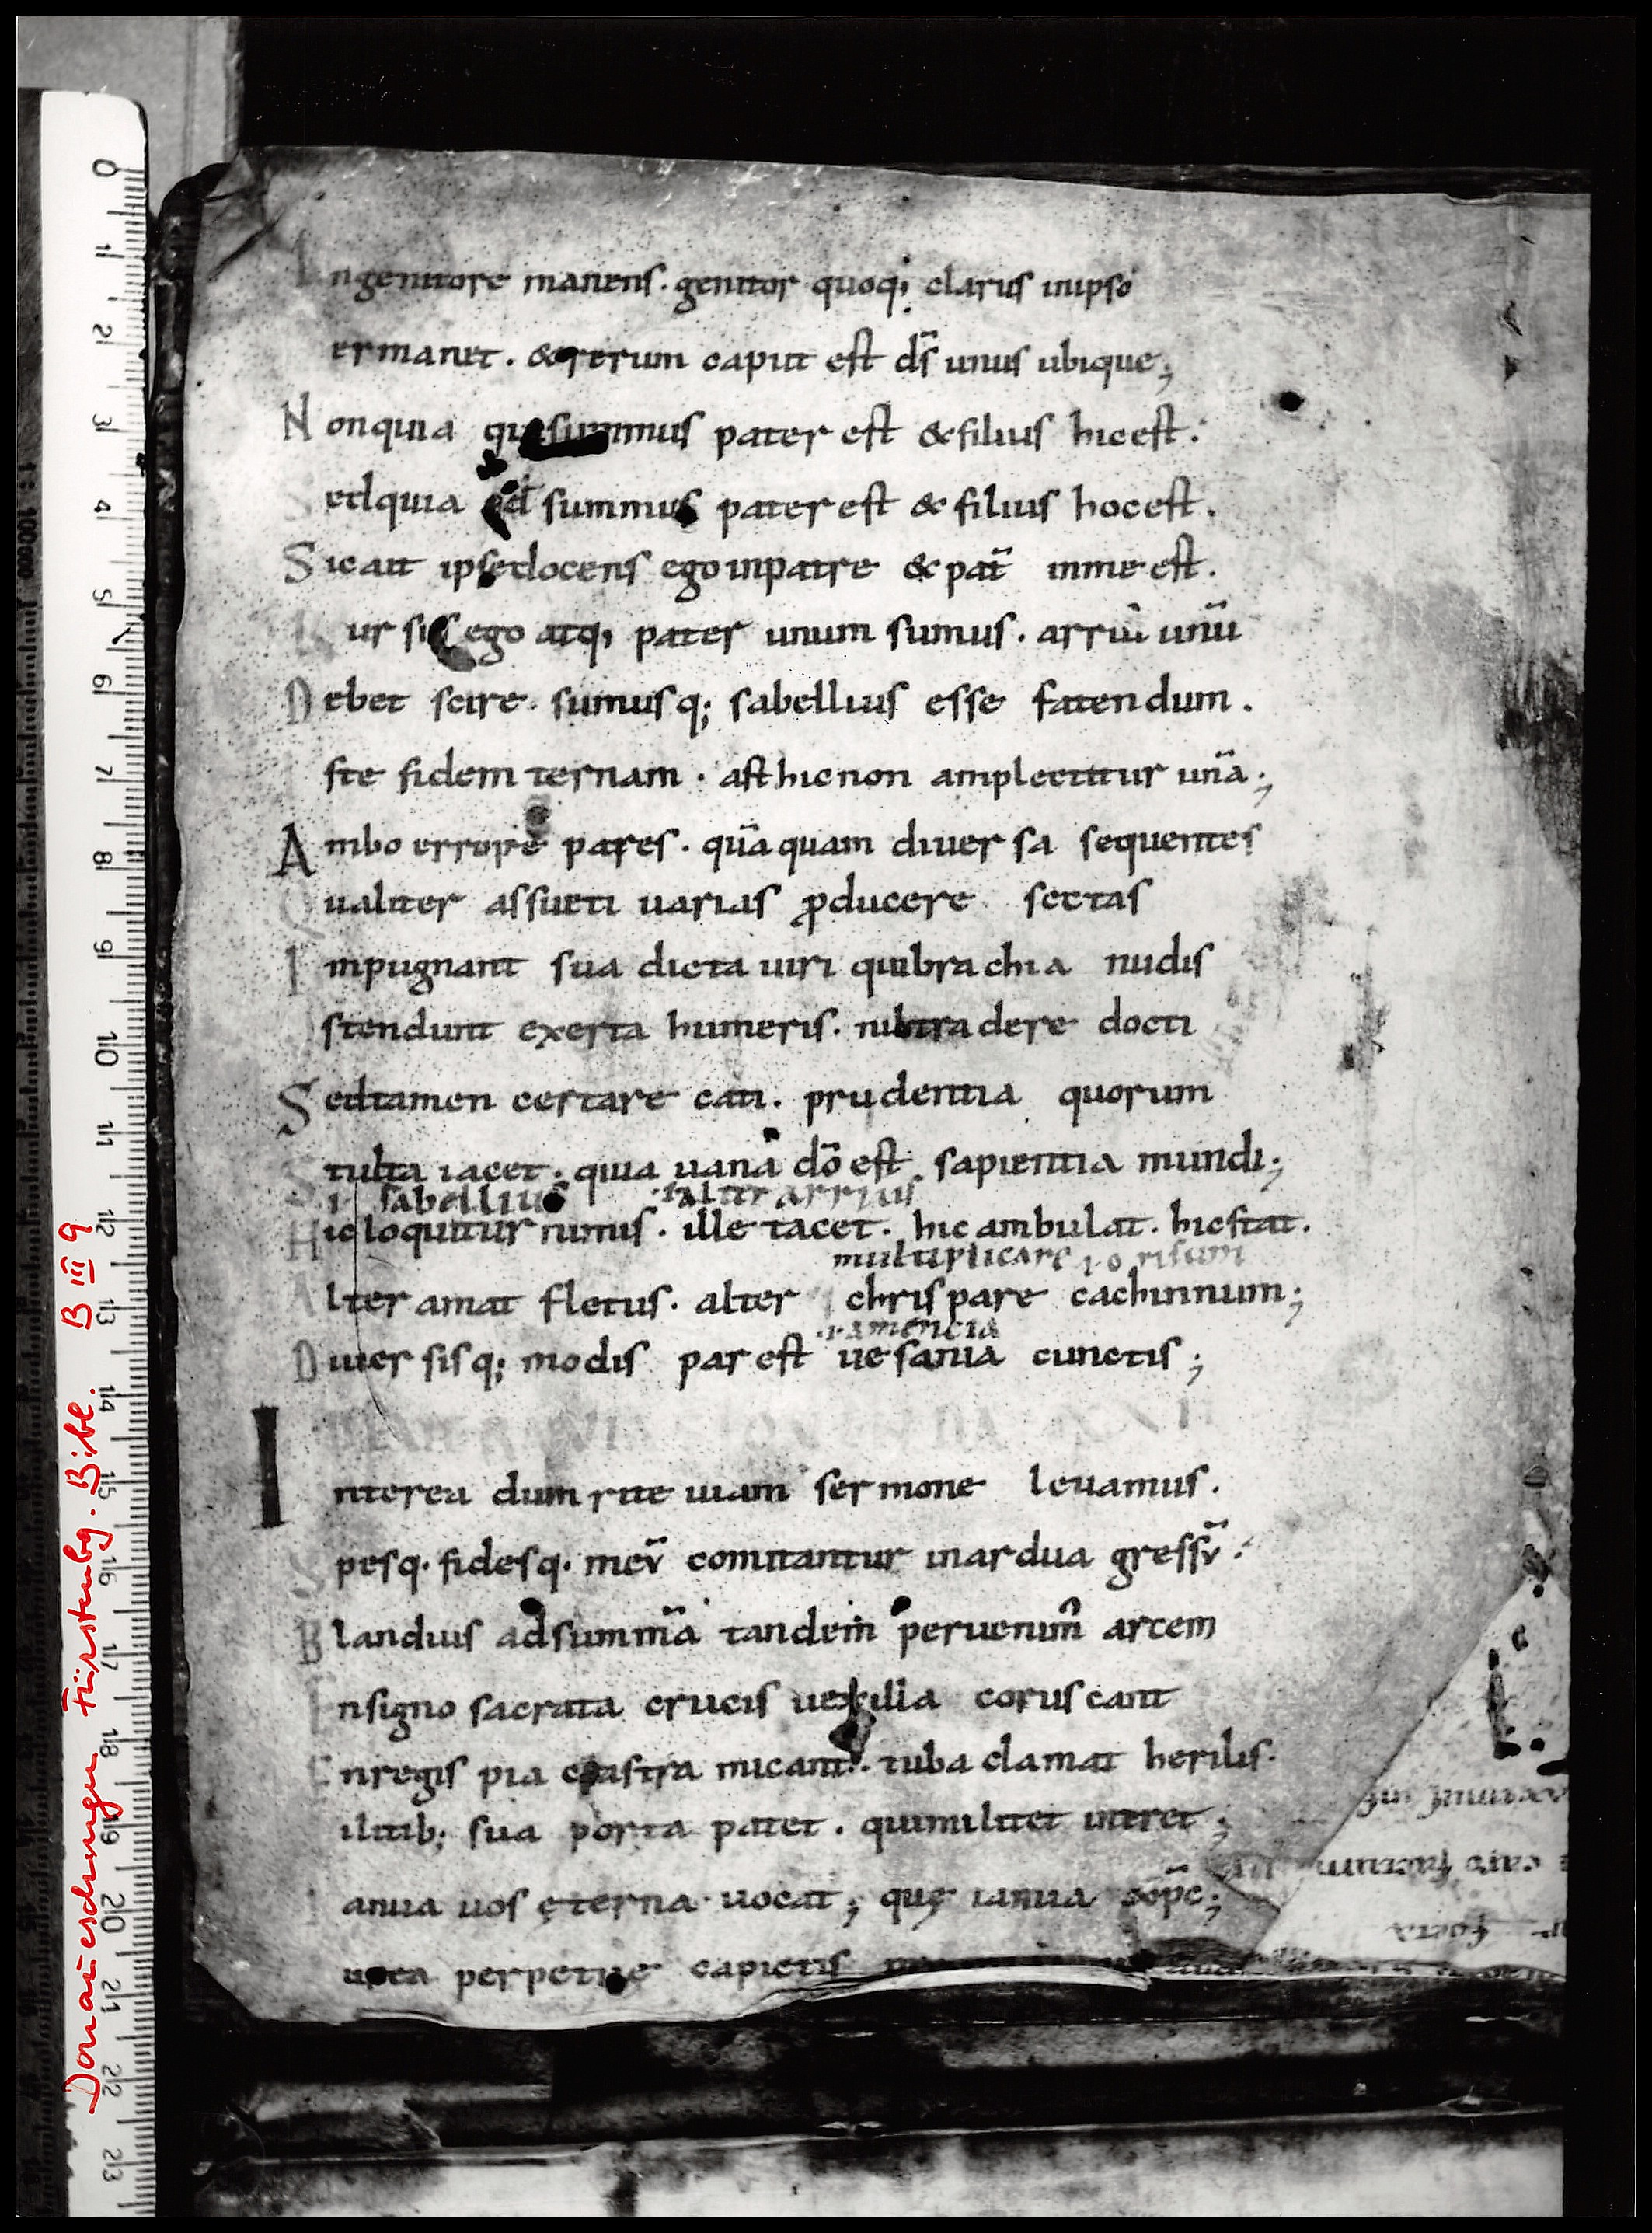 Ingenitore manens. genitor quoq; clarus inipso
ermanet. & rerum caput est ds̄ unus ubique;
Nonquia qui summus pater est & filius hic est.
Sedquia qd̄ summus pater est & filius hoc est.
Sicait ipse docens ego inpatre & pat̄ inme est.
ur sic ego atq; pater unum sumus. arriū unū
Debet scire. sumusq; sabellius esse fatendum.
ste fidem ternam. ast hic non amplectitur unā;
Ambo errore pares. quāquam diuersa sequentes
Qualiter assueti uarias ꝓducere sectas
Impugnant sua dicta uiri quibrachia nudis
stendunt exerta humeris. nil tradere docti
Sedtamen certare cati. prudentia quorum
Stulta iacet. quia uana dō est sapientia mundi;
.i. sabellius .i. alter arrius
Hic loquitur nimis. ille tacet. hic ambulat. hic stat.
multiplicare risum
Alter amat fletus. alter chrispare cachinnum;
.i. amencia
Diuersisq; modis par est uesania cunctis;
Interea dum rite uiam sermone leuamus.
Spesq. fidesq. meū comitantur inardua gressū.
Blandius adsummā tandem peruenim̄ arcem
Ensigno sacrata crucis uexilla coruscant
Enregis pia castra micant. tuba clamat herilis.
ilitib; sua porta patet. quimilitet intret;
Ianua uos ęterna uocat; quę ianua
perpetuę capietis
0
1
2
3
4
5
6
7
8
9
10
11
12
13
14
15
16
17
18
19
20
21
22
23
1:10000
Donaueschingen Fürstenbg. Bibl. B III 9